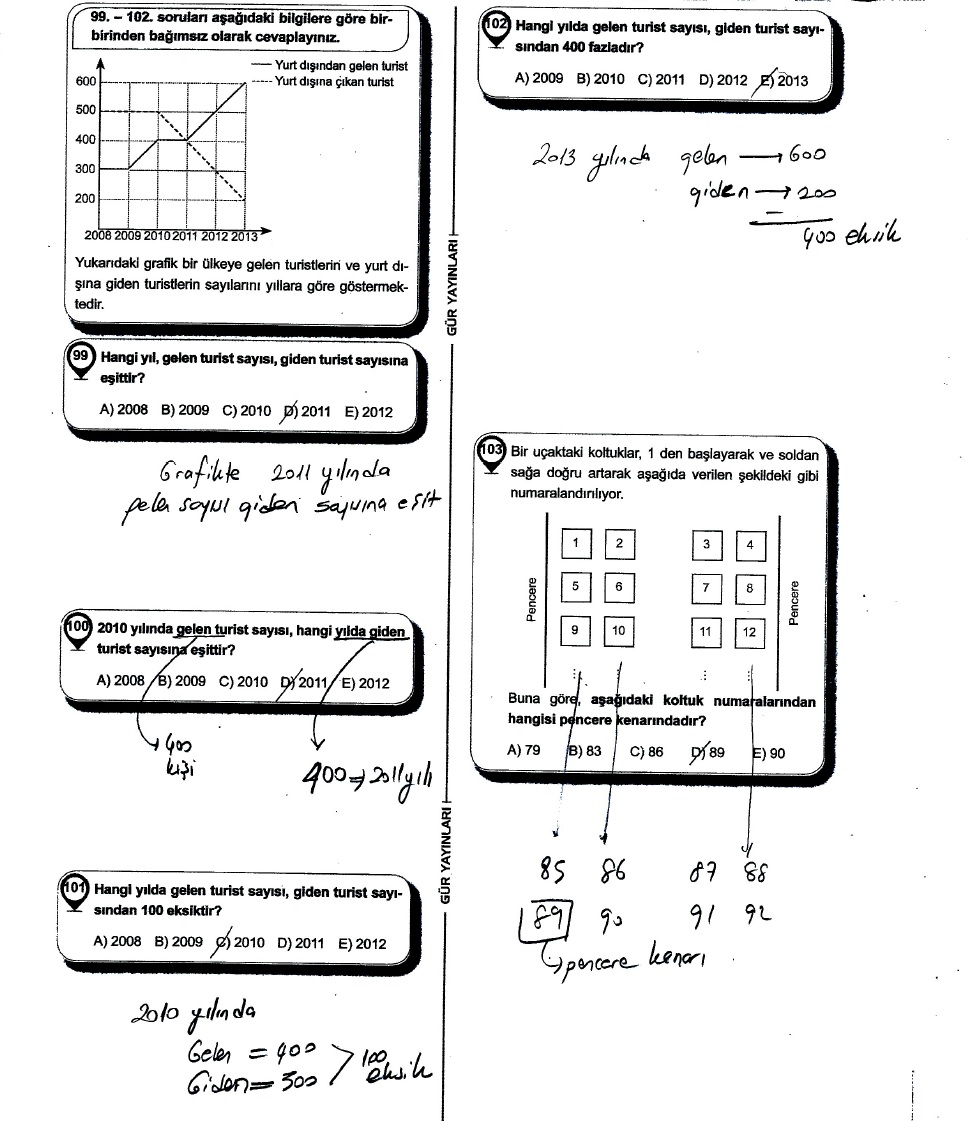 99. – 102. soruları aşağıdaki bilgilere göre bir-
birinden bağımsız olarak cevaplayınız.
Yurt dışından gelen turist
Yurt dışına çıkan turist
600
500
400
300
200
2008 2009 2010 2011 2012 2013
Yukarıdaki grafik bir ülkeye gelen turistlerin ve yurt dı-
şına giden turistlerin sayılarını yıllara göre göstermek-
tedir.
99 Hangi yıl, gelen turist sayısı, giden turist sayısına
eşittir?
A) 2008 B) 2009 C) 2010 D) 2011 E) 2012
Grafikte 2011 yılında
gelen sayısı giden sayısına eşit
100 2010 yılında gelen turist sayısı, hangi yılda giden
turist sayısına eşittir?
A) 2008 B) 2009 C) 2010 D) 2011 E) 2012
400
kişi
400 ⇒ 2011 yılı
101 Hangi yılda gelen turist sayısı, giden turist sayı-
sından 100 eksiktir?
A) 2008 B) 2009 C) 2010 D) 2011 E) 2012
2010 yılında
Gelen = 400
Giden = 500
100
eksik
GÜR YAYINLARI
GÜR YAYINLARI
102 Hangi yılda gelen turist sayısı, giden turist sayı-
sından 400 fazladır?
A) 2009 B) 2010 C) 2011 D) 2012 E) 2013
2013 yılında gelen → 600
giden → 200
400 eksik
103 Bir uçaktaki koltuklar, 1 den başlayarak ve soldan
sağa doğru artarak aşağıda verilen şekildeki gibi
numaralandırılıyor.
Pencere
1 2 3 4
5 6 7 8
9 10 11 12
Pencere
Buna göre, aşağıdaki koltuk numaralarından
hangisi pencere kenarındadır?
A) 79 B) 83 C) 86 D) 89 E) 90
85 86 87 88
89 90 91 92
pencere kenarı